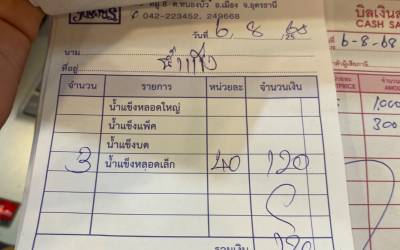 หมู่ 8 ต.หนองบัว อ.เมือง จ.อุดรธานี
042-223452, 249668
วันที่ 6, 8, 68
นาม
ที่อยู่
จำนวน รายการ หน่วยละ จำนวนเงิน
น้ำแข็งหลอดใหญ่
น้ำแข็งแพ็ค
น้ำแข็งบด
3 น้ำแข็งหลอดเล็ก 40 120
รวมเงิน 120
บิลเงินส
CASH SA
6-8-68
AMOU
1000
300